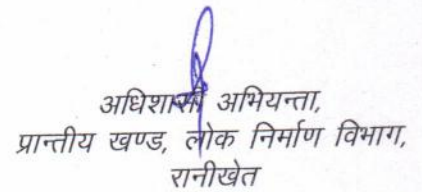 अधिशासी अभियन्ता,
प्रान्तीय खण्ड, लोक निर्माण विभाग,
रानीखेत